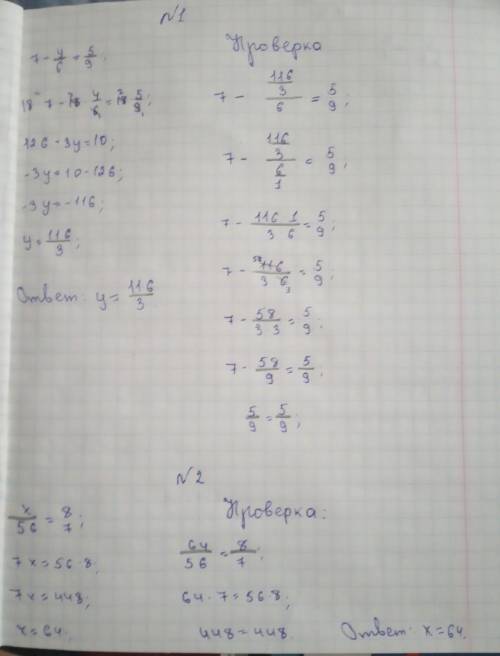 №1
7 - y/6 = 5/9;
18·7 - 18·y/6 = 18·5/9;
126 - 3y = 10;
-3y = 10 - 126;
-3y = -116;
y = 116/3;
Ответ: y = 116/3
Проверка
7 - 116/3/6 = 5/9;
7 - 116/3/6/1 = 5/9;
7 - 116 1/3 6 = 5/9;
7 - 116/3 6 = 5/9;
7 - 58/3 3 = 5/9;
7 - 58/9 = 5/9;
5/9 = 5/9;
№2
x/56 = 8/7;
7x = 56·8;
7x = 448;
x = 64.
Проверка:
64/56 = 8/7;
64·7 = 56·8;
448 = 448.
Ответ: x = 64.